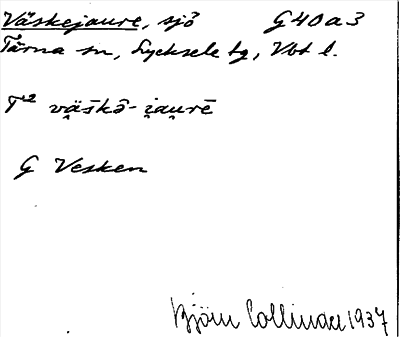 Väskejaure, sjö G40a3
Tärna sn, Lycksele tg, Vbt l.
T² vä̯s̄kō- i̯au̯rē
G Vesken
Björn Collinder 1937